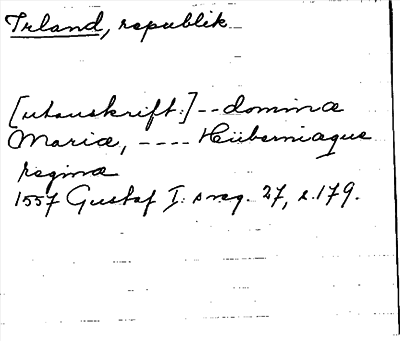 Irland, republik
[utanskrift:] -- dominæ
Mariæ, ---- Hüberniaque
regina
1557 Gustaf I: s reg. 27, s. 179.